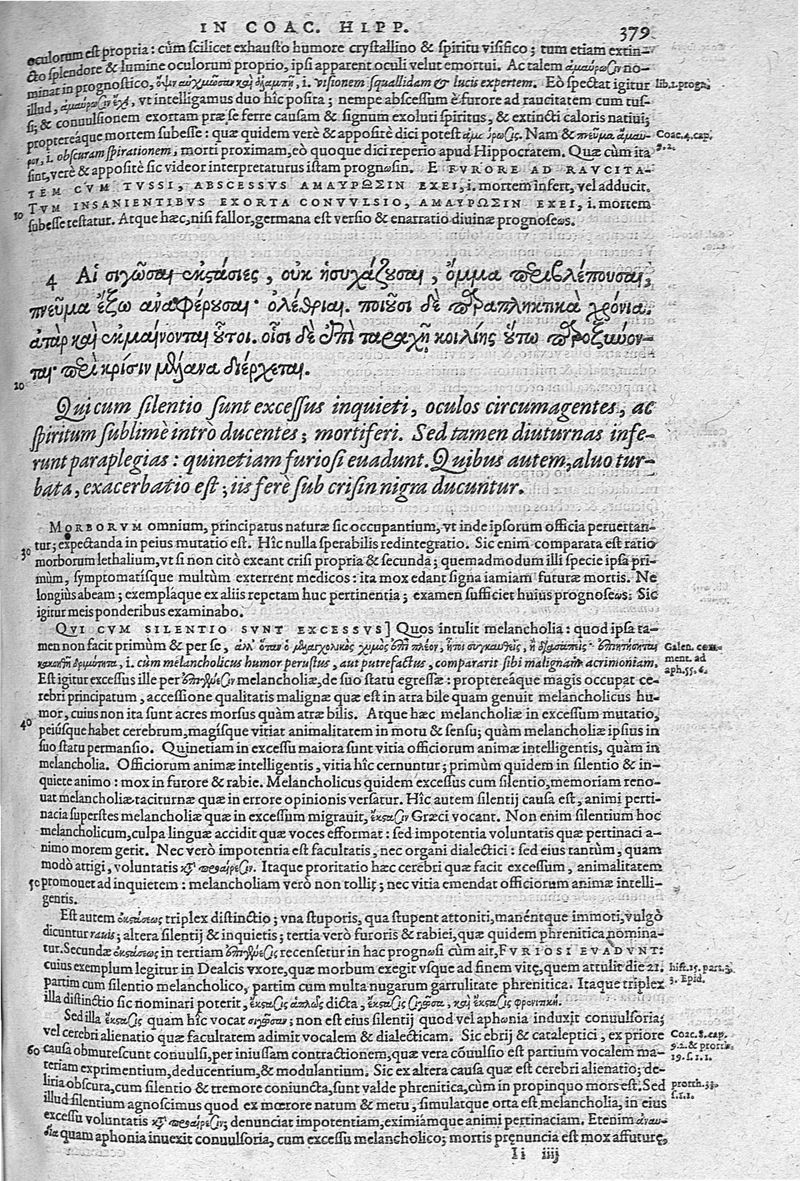 IN COAC. HIPP. 379
oculorum est propria: cùm scilicet exhausto humore crystallino & spiritu visifico; tum etiam extin-
cto splendore & lumine oculorum proprio, ipsi apparent oculi velut emortui. Ac talem ἀμαύρωσιν no-
minat in prognostico, i. visionem squallidam & lucis expertem. Eò spectat igitur lib. 1. progn.
illud, ἀμαύρωσιν ἔχει, vt intelligamus duo hîc posita; nempe abscessum è furore ad raucitatem cum tus-
si; & conuulsionem exortam præ se ferre causam & signum exoluti spiritus, & extincti caloris natiui;
proptereáque mortem subesse: quæ quidem verè & appositè dici potest ἀμαύρωσις. Nam & πνεῦμα ἄμαυ- Coac. 4. cap.
ρον, i. obscuram spirationem, morti proximam, eò quoque dici reperio apud Hippocratem. Quæ cùm ita 9. 2.
sint, verè & appositè sic videor interpretaturus istam prognosin. E FVRORE AD RAVCITA-
TEM CVM TVSSI, ABSCESSVS ΑΜΑΥΡΩΣΙΝ ΕΧΕΙ, i. mortem infert, vel adducit.
10 TVM INSANIENTIBVS EXORTA CONVVLSIO, ΑΜΑΥΡΩΣΙΝ ΕΧΕΙ, i. mortem
subesse testatur. Atque hæc, nisi fallor, germana est versio & enarratio diuinæ prognoseωs.
4 Αἱ σιγῶσαι ἐκστάσιες, οὐκ ἡσυχάζουσαι, ὄμμα περιβλέπουσαι,
πνεῦμα ἔξω ἀναφέρουσαι· ὀλέθριαι. ποιοῦσι δὲ παραπληκτικὰ χρόνια.
ἀτὰρ καὶ ἐκμαίνονται οὗτοι. οἷσι δὲ ἐπὶ ταραχῇ κοιλίης ὕπο παροξυνον-
20 ται· περὶ κρίσιν μέλανα διέρχεται.
Qui cum silentio sunt excessus inquieti, oculos circumagentes, ac
spiritum sublimè intrò ducentes; mortiferi. Sed tamen diuturnas infe-
runt paraplegias: quinetiam furiosi euadunt. Quibus autem, aluo tur-
bata, exacerbatio est; iis ferè sub crisin nigra ducuntur.
MORBORVM omnium, principatus naturæ sic occupantium, vt inde ipsorum officia peruertan-
30 tur; expectanda in peius mutatio est. Hîc nulla sperabilis redintegratio. Sic enim comparata est ratio
morborum lethalium, vt si non citò exeant crisi propria & secunda; quemadmodum illi specie ipsa pri-
mùm, symptomatisque multùm exterrent medicos: ita mox edant signa iamiam futuræ mortis. Ne
longiùs abeam; exemplaque ex aliis repetam huc pertinentia; examen sufficiet huius prognoseωs. Sic
igitur meis ponderibus examinabo.
QVI CVM SILENTIO SVNT EXCESSVS] Quos intulit melancholia: quod ipsa ta-
men non facit primùm & per se, ἀλλ' ὅταν ὁ μελαγχολικὸς χυμὸς ἐπὶ πλέον, ἤτοι συγκαυθεὶς, ἢ διασαπεὶς ἐπικτήσηται Galen. com-
κακοήθη δριμύτητα, i. cùm melancholicus humor perustus, aut putrefactus, compararit sibi malignam acrimoniam. ment. ad
Est igitur excessus ille per melancholiæ, de suo statu egressæ: proptereáque magis occupat ce- aph. 55. 6.
rebri principatum, accessione qualitatis malignæ quæ est in atra bile quam genuit melancholicus hu-
40 mor, cuius non ita sunt acres morsus quàm atræ bilis. Atque hæc melancholiæ in excessum mutatio,
peiúsque habet cerebrum, magisque vitiat animalitatem in motu & sensu; quàm melancholiæ ipsius in
suo statu permansio. Quinetiam in excessu maiora sunt vitia officiorum animæ intelligentis, quàm in
melancholia. Officiorum animæ intelligentis, vitia hîc cernuntur; primùm quidem in silentio & in-
quiete animo: mox in furore & rabie. Melancholicus quidem excessus cum silentio, memoriam reno-
uat melancholiæ taciturnæ quæ in errore opinionis versatur. Hîc autem silentij causa est, animi perti-
nacia superstes melancholiæ quæ in excessum migrauit, ἔκστασιν Græci vocant. Non enim silentium hoc
melancholicum, culpa linguæ accidit quæ voces efformat: sed impotentia voluntatis quæ pertinaci a-
nimo morem gerit. Nec verò impotentia est facultatis, nec organi dialectici: sed eius tantùm, quam
modò attigi, voluntatis κατὰ προαίρεσιν. Itaque proritatio hæc cerebri quæ facit excessum, animalitatem
50 promouet ad inquietem: melancholiam verò non tollit; nec vitia emendat officiorum animæ intelli-
gentis.
Est autem ἐκστάσεως triplex distinctio; vna stuporis, qua stupent attoniti, manéntque immoti, vulgò
dicuntur rauis; altera silentij & inquietis; tertia verò furoris & rabiei, quæ quidem phrenitica nomina-
tur. Secundæ ἐκστάσεως in tertiam recensetur in hac prognosi cùm ait, FVRIOSI EVADVNT:
cuius exemplum legitur in Dealcis vxore, quæ morbum exegit vsque ad finem vitę, quem attulit die 21. hist. 15. part. 3.
partim cum silentio melancholico, partim cum multa nugarum garrulitate phrenitica. Itaque triplex 3. Epid.
illa distinctio sic nominari poterit, ἔκστασις ἁπλῶς dicta, ἔκστασις σιγῶσα, καὶ ἔκστασις φρενιτική.
Sed illa ἔκστασις quam hîc vocat σιγῶσαν; non est eius silentij quod vel aphonia induxit conuulsoria;
vel cerebri alienatio quæ facultatem adimit vocalem & dialecticam. Sic ebrij & cataleptici, ex priore Coac. 8. cap.
60 causa obmutescunt conuulsi, per iniussam contractionem, quæ vera cōuulsio est partium vocalem ma- 9. 2. & prorrh.
teriam exprimentium, deducentium, & modulantium. Sic ex altera causa quæ est cerebri alienatio; de- 19. s. 1. 1.
liria obscura, cum silentio & tremore coniuncta, sunt valde phrenitica, cùm in propinquo mors est. Sed prorrh. 33.
illud silentium agnoscimus quod ex mœrore natum & metu, simulatque orta est melancholia, in eius s. 1. 1.
excessu voluntatis κατὰ προαίρεσιν; denunciat impotentiam, eximiámque animi pertinaciam. Etenim ἀναυ-
δία quam aphonia inuexit conuulsoria, cum excessu melancholico; mortis prenuncia est mox affuturę,
Ii iiij